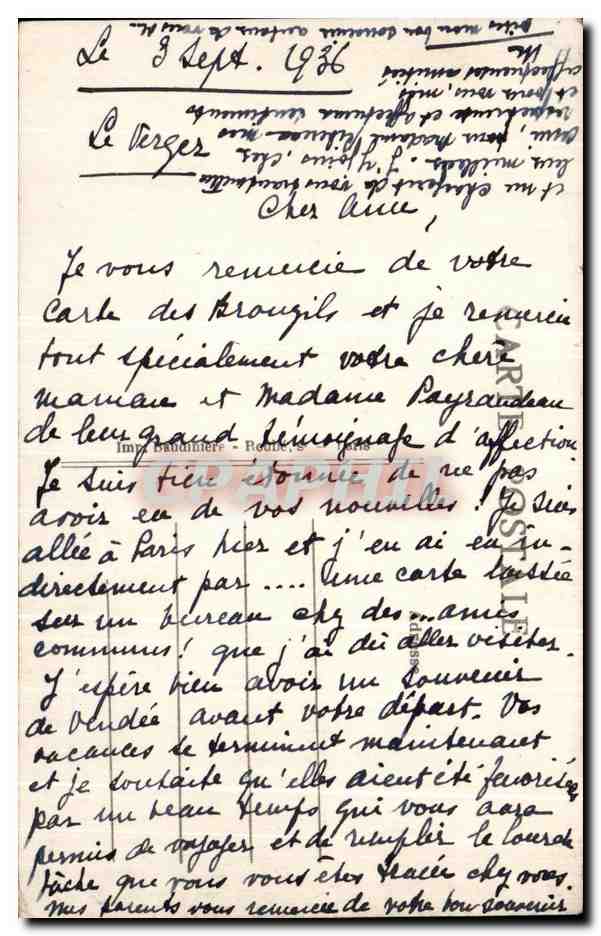 Le 3 Sept. 1936
Le Verger
Cher Amie,
Je vous remercie de votre
carte des Brouzils et je remercie
tout spécialement votre chère
maman et Madame Payraudeau
de leur grand témoignage d'affection
Je suis bien étonnée de ne pas
avoir eu de vos nouvelles! Je suis
allée à Paris hier et j'en ai eu in-
directement par .... une carte laissée
sur un bureau chez des...amis
communs! que j'ai dû aller visiter.
J'espère bien avoir un souvenir
de Vendée avant votre départ. Vos
vacances se terminent maintenant
et je souhaite qu'elles aient été favorisées
par un beau temps qui vous aura
permis de voyager et de remplir le
tâche que vous vous êtes tracée chez vous.
Mes parents vous remercie de votre bon souvenir
et me chargent de vous transmettre
leurs meilleurs. J'y joins, cher
ami, pour Madame mes
respectueux et affectueux sentiments
et pour vous, mes
affectueuses amitiés
M
mon bon souvenir autour de vous
CARTE POSTALE
Imp. Baudinière - Paris
Adresse
CPAPHIL